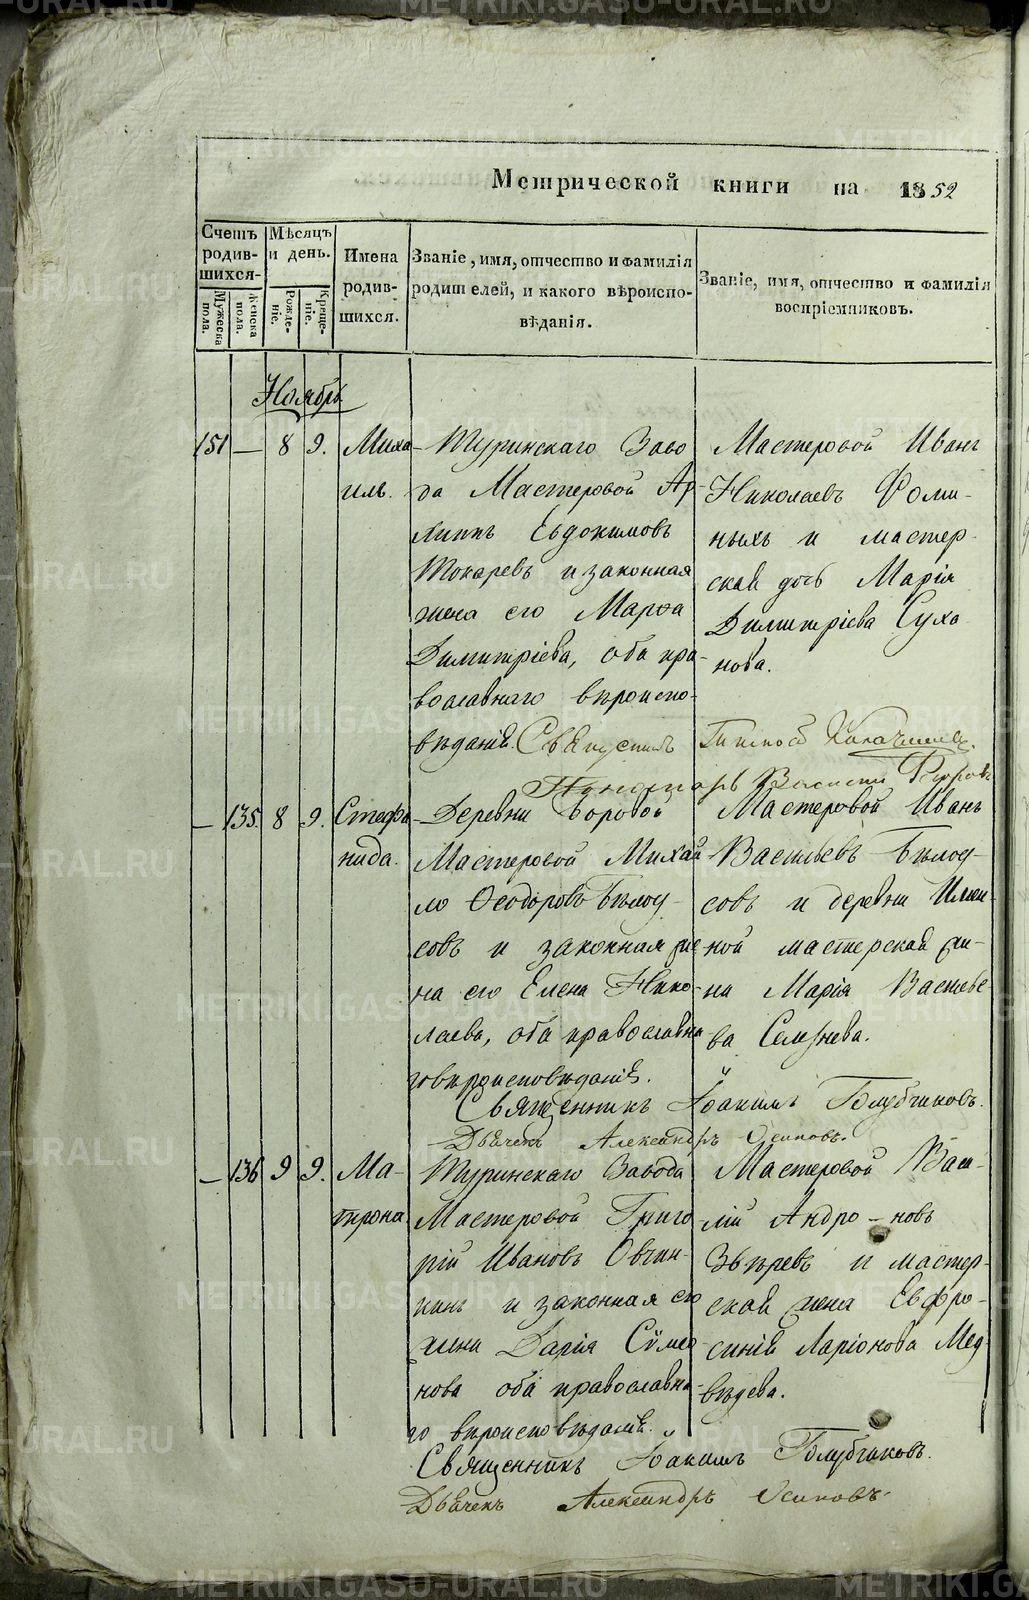 Метрической книги на 1852
Счетъ родив-шихся
Мужеска пола.
Женска пола.
Мѣсяцъ и день.
Рожде-ніе.
Креще-ніе.
Имена
родив-
шихся.
Званіе, имя, отчество и фамилія
родителей, и какого вѣроиспо-
вѣданія.
Званіе, имя, отчество и фамилія
воспріемниковъ.
Ноябрь
151 — 8 9.
Миха-
илъ.
Туринскаго Заво
да Мастеровой Ар-
хиппъ Евдокимовъ
Токаревъ и законная
жена его Марѳа
Димитріева, оба пра-
вославнаго вѣроиспо-
вѣданія.
Мастеровой Иванъ
Николаевъ Фоми-
ныхъ и мастер-
ская дочь Марія
Димитріева Суха
нова.
Пономарь Василій
— 135. 8 9.
Стефа-
нида.
Деревни Боровой
Мастеровой Михай
ло Ѳеодоровъ Бѣлоу-
совъ и законная же
на его Елена Нико-
лаева, оба православна
го вѣроисповѣданія.
Мастеровой Иванъ
Васильевъ Бѣлоу-
совъ и деревни
ной мастерская же-
на Марія Василье-
ва Селезнева.
Священникъ Іоакимъ Голубчиковъ.
Дьячекъ Александръ Осиповъ.
— 136 9 9.
Ма-
трона
Туринскаго Завода
Мастеровой Григо
рій Ивановъ Овчин-
никъ и законная его
жена Дарія Сѵмео
нова оба православна-
го вѣроисповѣданія.
Мастеровой Васи-
лій Андро-новъ
Звѣревъ и мастер-
ская жена Евфро-
синія Ларіонова Мед-
вѣдева.
Священникъ Іоакимъ Голубчиковъ.
Дьячекъ Александръ Осиповъ.
METRIKI.GASO-URAL.RU